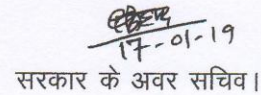 17-01-19
सरकार के अवर सचिव।